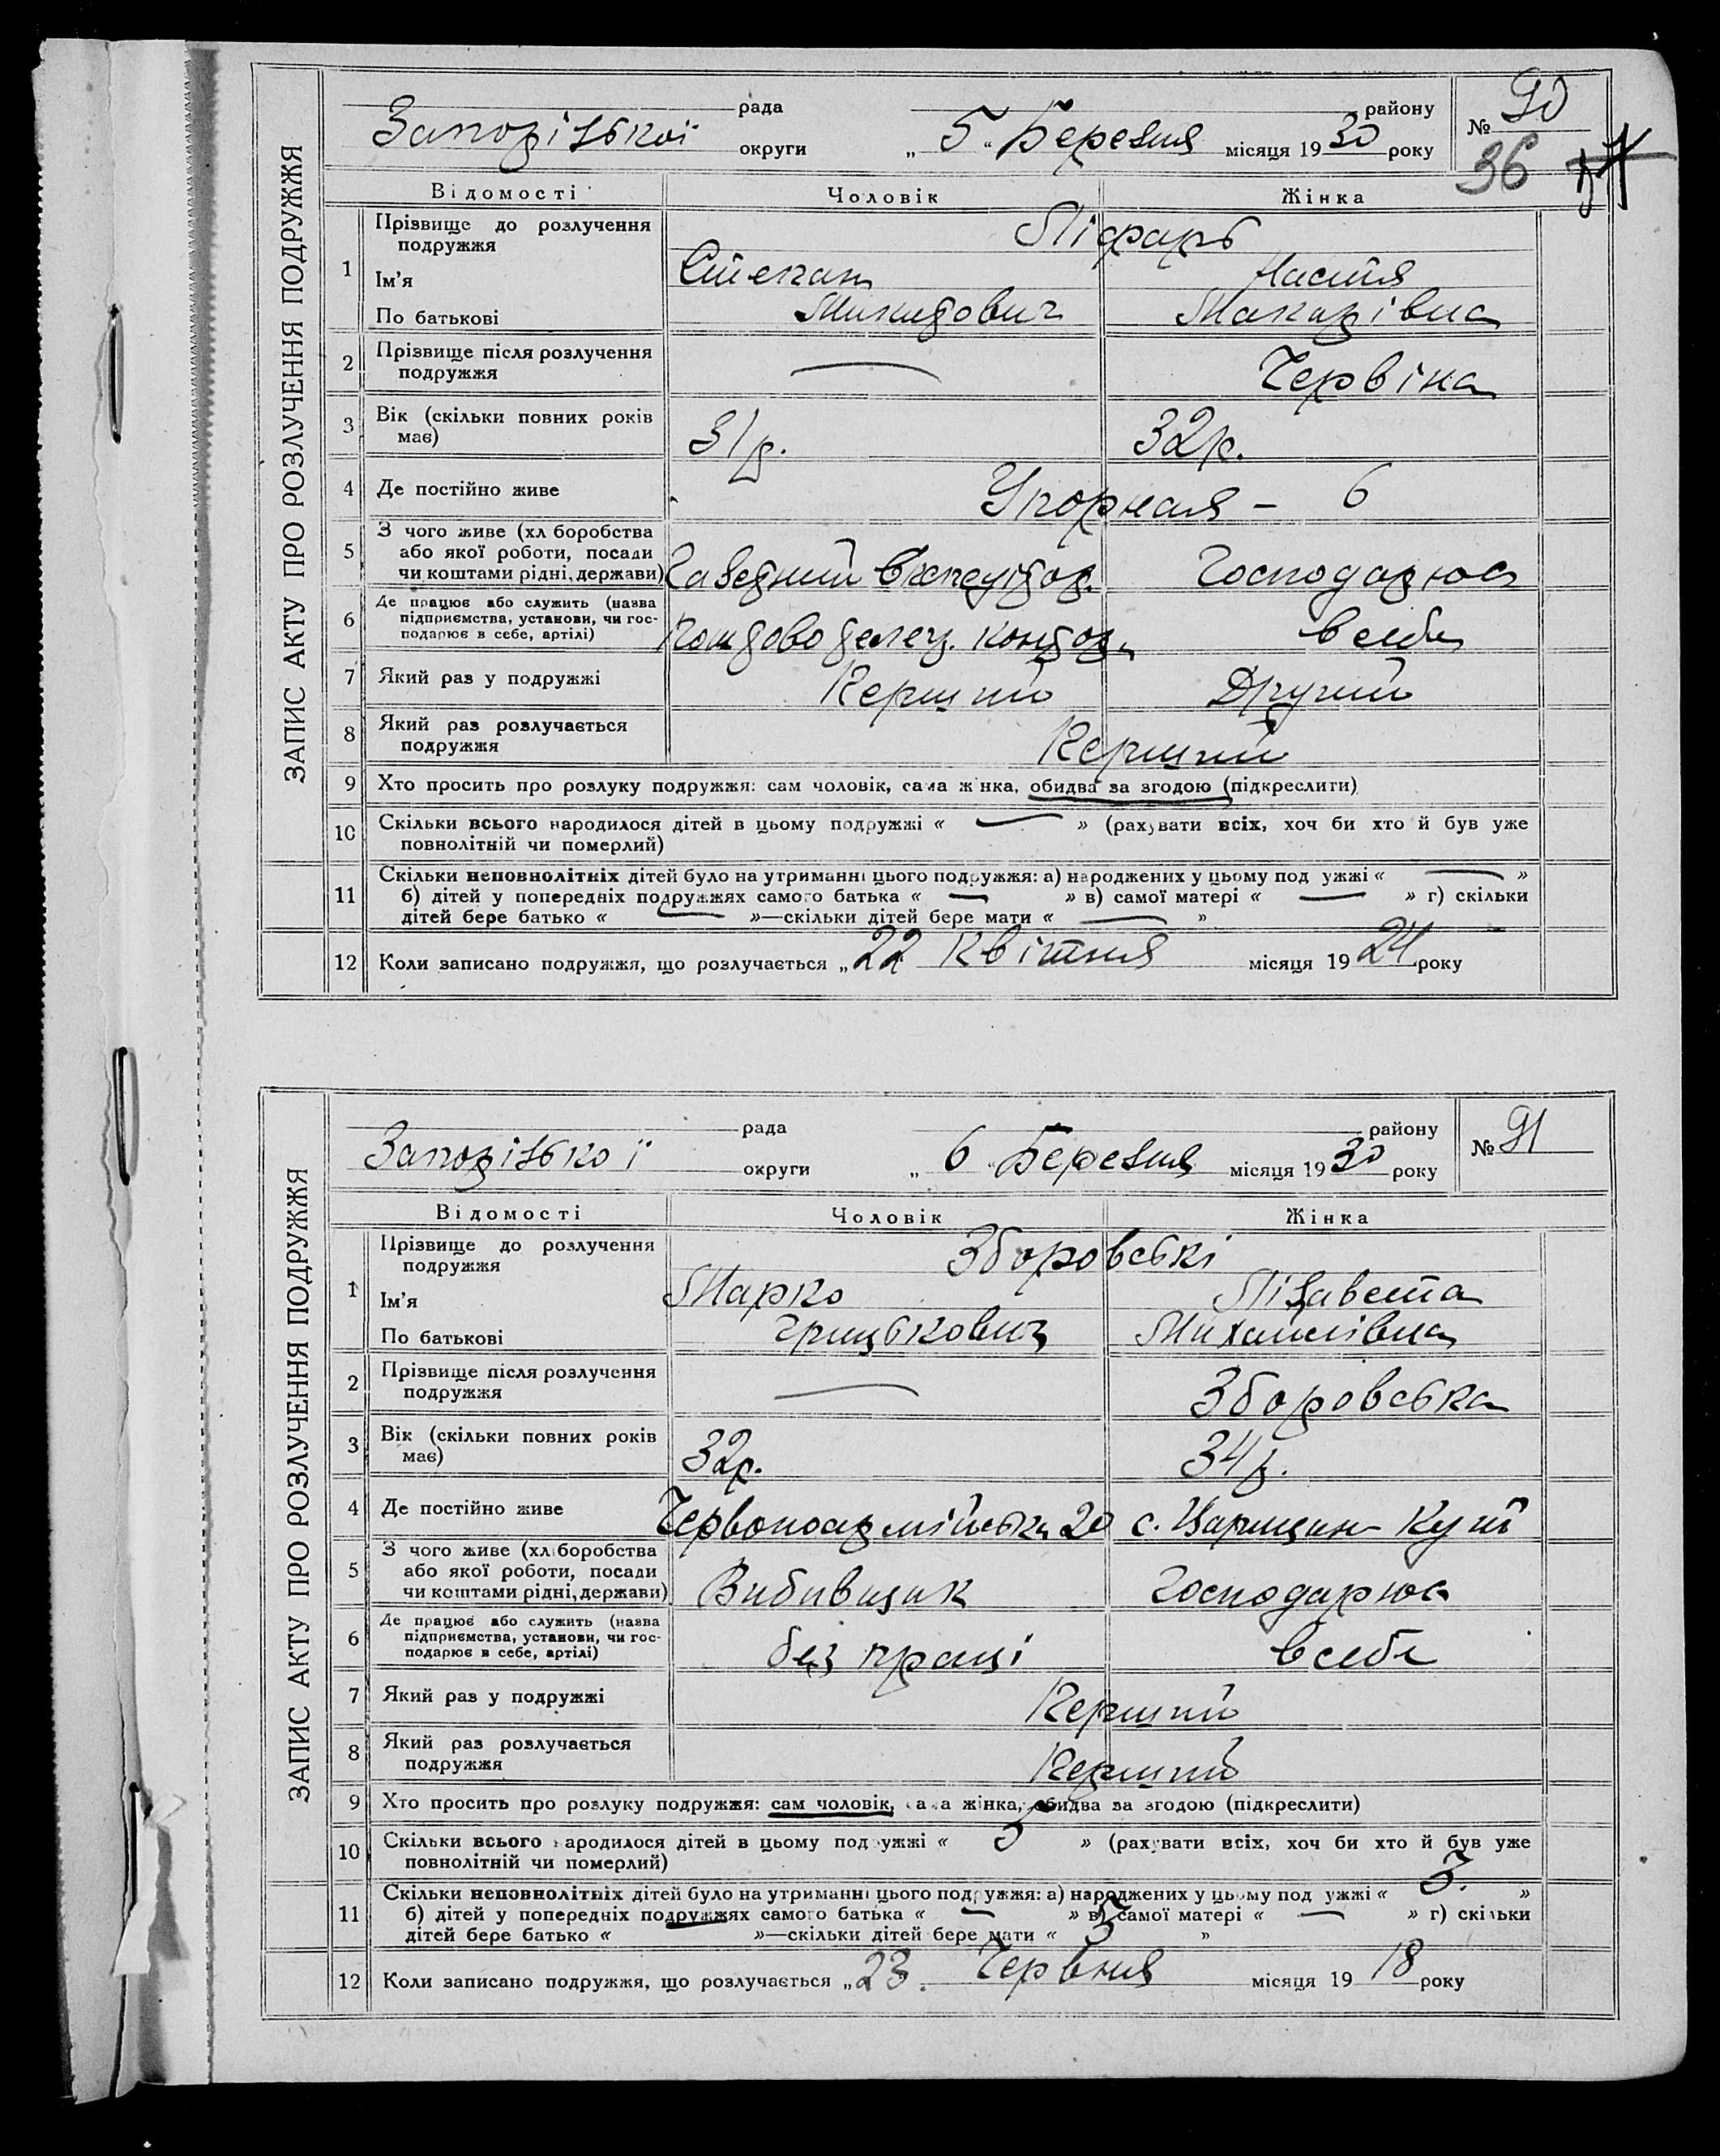 ЗАПИС АКТУ ПРО РОЗЛУЧЕННЯ ПОДРУЖЖЯ
рада району № 90
Запорізької округи „ 5 “ Березня місяця 1930 року
36
Відомості Чоловік Жінка
1 Прізвище до розлучення подружжя Ліфарь
Ім'я Степан Настя
По батькові Микидович Макарівна
2 Прізвище після розлучення подружжя — Червіна
3 Вік (скільки повних років має) 31 р. 32 р.
4 Де постійно живе Упорная – 6
5 З чого живе (хліборобства або якої роботи, посади чи коштами рідні, держави) Господарює
6 Де працює або служить (назва підприємства, установи, чи господарює в себе, артілі) в себе
7 Який раз у подружжі Перший Другий
8 Який раз розлучається подружжя Перший
9 Хто просить про розлуку подружжя: сам чоловік, сама жінка, обидва за згодою (підкреслити)
10 Скільки всього народилося дітей в цьому подружжі « — » (рахувати всіх, хоч би хто й був уже
повнолітній чи померлий)
11 Скільки неповнолітніх дітей було на утриманні цього подружжя: а) народжених у цьому подружжі « — »
б) дітей у попередніх подружжях самого батька « — » в) самої матері « — » г) скільки
дітей бере батько « — »—скільки дітей бере мати « — »
12 Коли записано подружжя, що розлучається „ 22 Квітня місяця 1924 року
ЗАПИС АКТУ ПРО РОЗЛУЧЕННЯ ПОДРУЖЖЯ
рада району № 91
Запорізької округи „ 6 “ Березня місяця 1930 року
Відомості Чоловік Жінка
1 Прізвище до розлучення подружжя Зборовські
Ім'я Марко Лізавета
По батькові Грицькович Михайлівна
2 Прізвище після розлучення подружжя — Зборовська
3 Вік (скільки повних років має) 32 р. 34 р.
4 Де постійно живе Червоноармійська 20 с. Царицин Кут
5 З чого живе (хліборобства або якої роботи, посади чи коштами рідні, держави) Вибивщик Господарює
6 Де працює або служить (назва підприємства, установи, чи господарює в себе, артілі) без праці в себе
7 Який раз у подружжі Перший
8 Який раз розлучається подружжя Перший
9 Хто просить про розлуку подружжя: сам чоловік, сама жінка, обидва за згодою (підкреслити)
10 Скільки всього народилося дітей в цьому подружжі « 3 » (рахувати всіх, хоч би хто й був уже
повнолітній чи померлий)
11 Скільки неповнолітніх дітей було на утриманні цього подружжя: а) народжених у цьому подружжі « 3. »
б) дітей у попередніх подружжях самого батька « — » в) самої матері « — » г) скільки
дітей бере батько « »—скільки дітей бере мати « 3 »
12 Коли записано подружжя, що розлучається „ 23. Червня місяця 1918 року